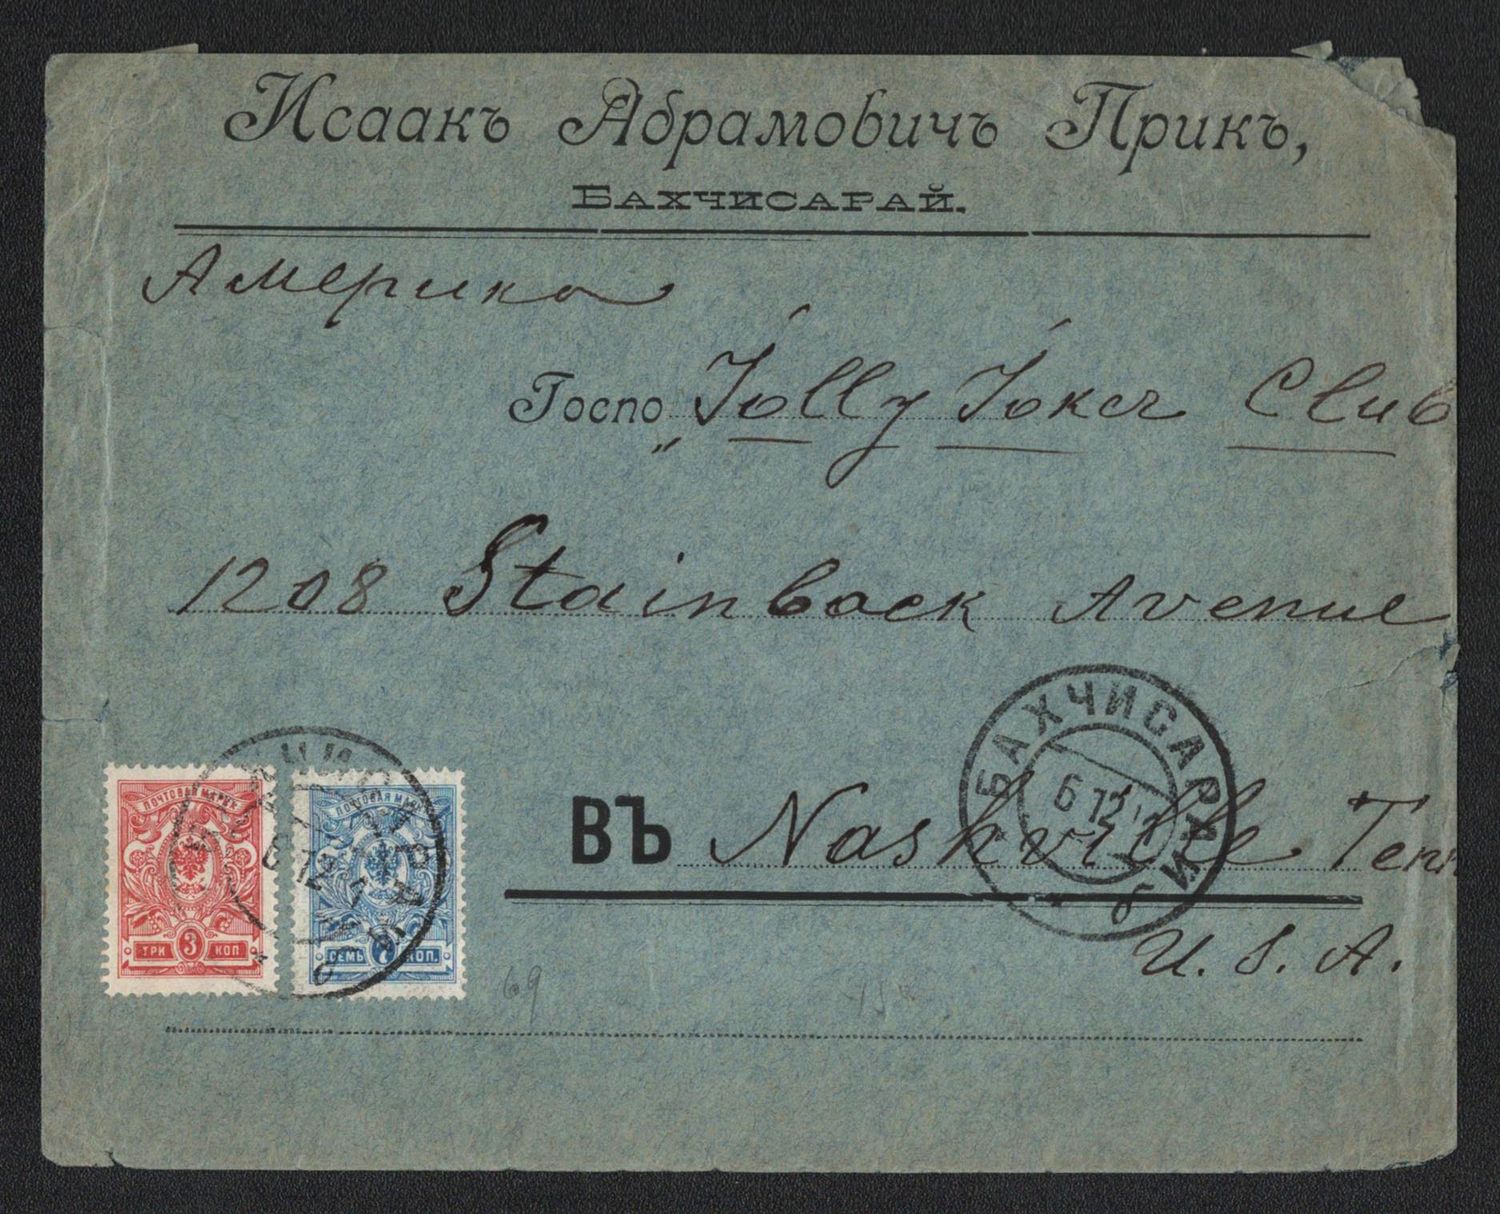 Исаакъ Абрамовичъ Прикъ,
Бахчисарай.
Америка
Госпо „Jolly Joker Club
1208 Stainback Avenue
ВЪ Nashville Tenn
U. S. A.
БАХЧИСАРАЙ
6 12
б
ПОЧТОВАЯ МАРКА
ТРИ 3 КОП
ПОЧТОВАЯ МАРКА
СЕМЬ 7 КОП.
69